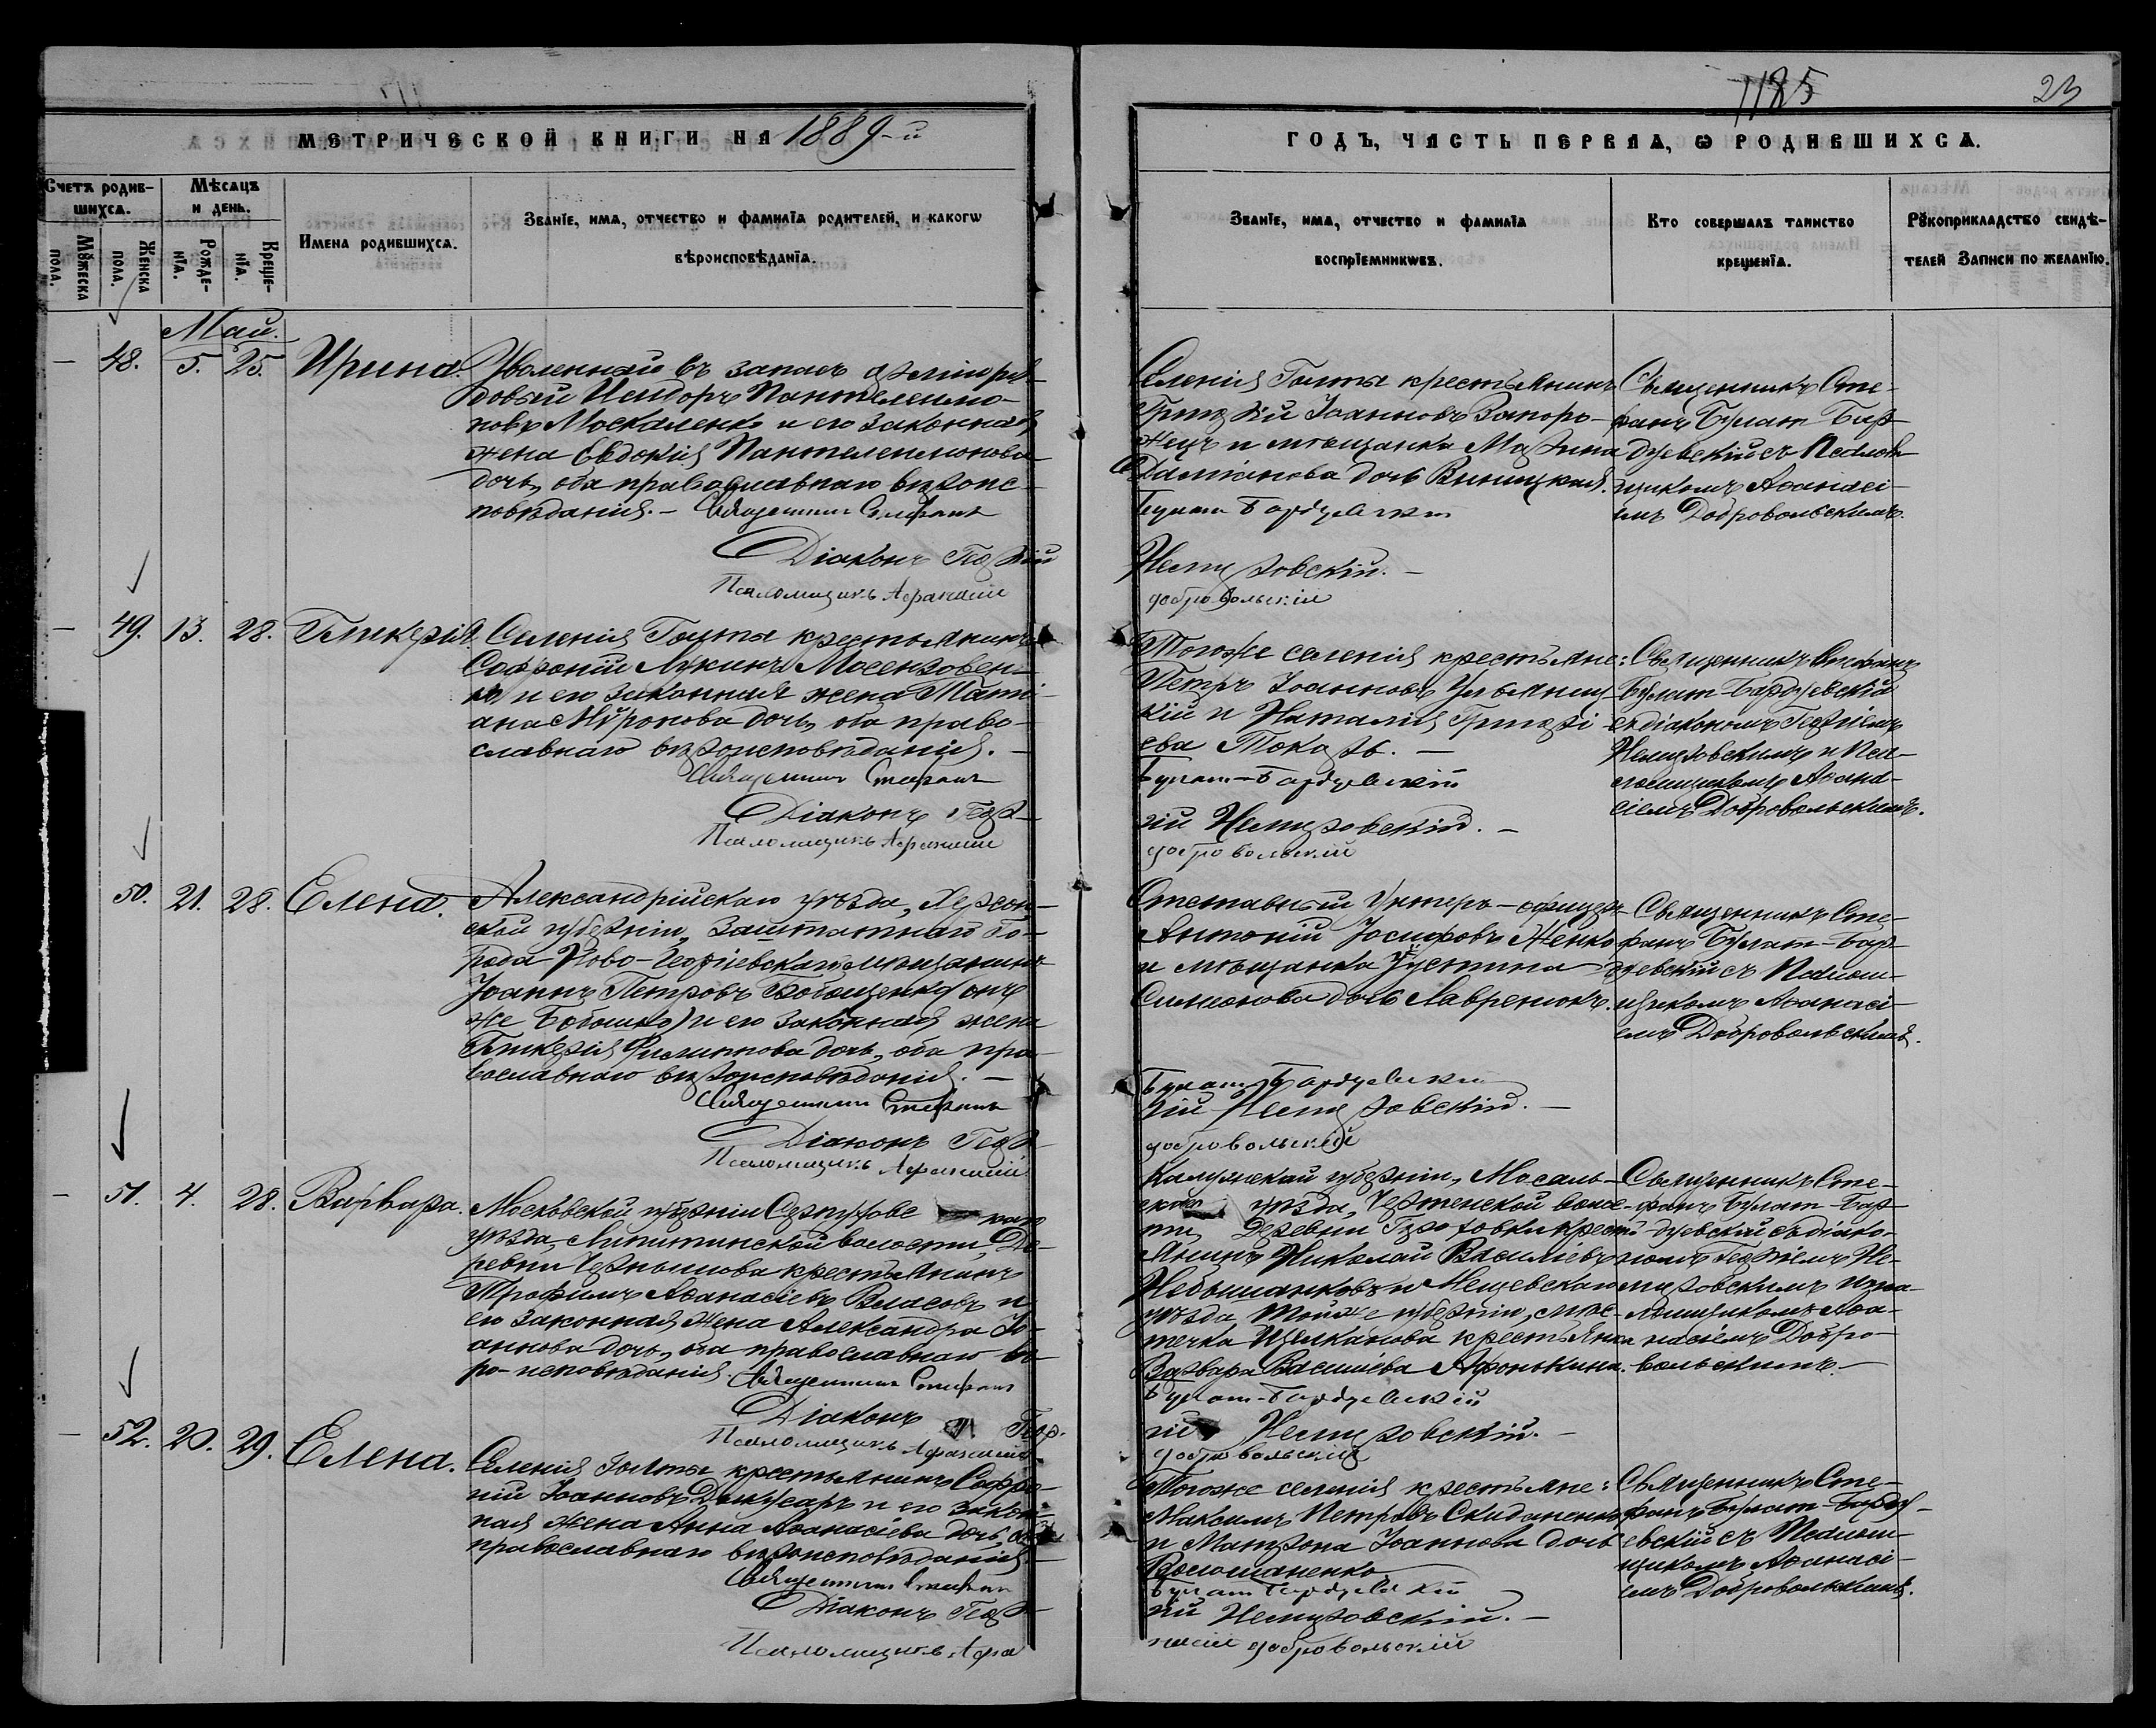 1185
23
МЕТРИЧЕСКОЙ КНИГИ НА 1889-й
ГОДЪ, ЧАСТЬ ПЕРВАЯ, Ѡ РОДИВШИХСѦ.
Счетъ родившихсѧ.
Мѣсѧцъ и день.
Мꙋжеска пола.
Женска пола.
Рожденїѧ.
Крещенїѧ.
Имена родившихсѧ.
Званїе, имѧ, отчество и фамилїѧ родителей, и какогѡ
вѣроисповѣданїѧ.
Званїе, имѧ, отчество и фамилїѧ
воспрїемникѡвъ.
Кто совершалъ таинство
крещенїѧ.
Рꙋкоприкладство свидѣ-
телей записи по желанїю.
Май.
— 48. 5. 25. Ирина.
Уволенный въ запасъ арміи ря-
довый Исидоръ Пантелеимо-
новъ Москаленко и его законная
жена Евдокія Пантелеимонова
дочь, оба православнаго вѣроис-
повѣданія. — Священникъ Стефанъ
Діаконъ Георгій
Псаломщикъ Афанасій
Селенія Голты крестьянинъ
Григорій Іоанновъ Запоро-
жецъ и мѣщанка Марина
Даміанова дочь Виницкая.
Булат-Бардуевскій
Немировскій. —
Добровольскій
Священникъ Сте-
фанъ Булат-Бар-
дуевскій съ Псалом-
щикомъ Аѳанасі-
емъ Добровольскимъ.
— 49. 13. 28. Гликерія.
Селенія Голты крестьянинъ
Софроній Лукинъ Мосензовен-
ко и его законная жена Тати-
ана Миронова дочь, оба право-
славнаго вѣроисповѣданія. —
Священникъ Стефанъ
Діаконъ Геор-
Псаломщикъ Афанасій
Тогоже селенія крестьяне:
Петръ Іоанновъ Ульяниц-
кій и Наталія Григорі-
ева Токарь. —
Булат-Бардуевскій
гій Немировскій. —
Добровольскій
Священникъ Стефанъ
Булат-Бардуевскій
съ діакономъ Георгіемъ
Немировскимъ и Пса-
ломщикомъ Аѳана-
сіемъ Добровольскимъ.
50. 21. 28. Елена.
Александрійскаго уѣзда, Херсон-
ской губерніи, Заштатнаго го-
рода Ново-Георгіевска мѣщанинъ
Іоаннъ Петровъ (онъ
же ) и его законная жена
Гликерія Филиппова дочь, оба пра-
вославнаго вѣроисповѣданія. —
Священникъ Стефанъ
Діаконъ Геор-
Псаломщикъ Афанасій
Отставный Унтеръ-офицеръ
Антоній Іосифовъ Женко
и мѣщанка Іустина
Симеонова дочь Лавренюкъ.
Булат-Бардуевскій
гій Немировскій. —
Добровольскій
Священникъ Сте-
фанъ Булат-Бар-
дуевскій съ Псалом-
щикомъ Аѳанасі-
емъ Добровольскимъ.
— 51. 4. 28. Варвара.
Московской губерніи Серпуховс каго
уѣзда, Липитинской волости, Де-
ревни крестьянинъ
Трофимъ Аѳанасіевъ Власовъ и
его законная жена Александра Іо-
аннова дочь, оба православнаго вѣ-
ро-исповѣданія. Священникъ Стефанъ
Діаконъ Геор.
Псаломщикъ Афанасій
Калужской губерніи, Мосаль-
скаго уѣзда, Чертенской волос-
ти, деревни кресть-
янинъ Николай Василіевъ
и Мещевскаго
уѣзда, тойже губерніи, мѣс-
течка Щелканова крестьянка
Варвара Василіева Афонькина.
Булат-Бардуевскій
гій Немировскій. —
Добровольскій
Священникъ Сте-
фанъ Булат-Бар-
дуевскій съ діако-
номъ Георгіемъ Не-
мировскимъ и пса-
ломщикомъ Аѳа-
насіемъ Добро-
вольскимъ. —
— 52. 20. 29. Елена.
Селенія Голты крестьянинъ Софро-
ній Іоанновъ и его закон-
ная жена Анна Аѳанасіева дочь, оба
православнаго вѣроисповѣданія. —
Священникъ Стефанъ
Діаконъ Геор-
Псаломщикъ Афа
Тогоже селенія крестьяне:
Максимъ Петровъ Скиданенко
и Матрона Іоаннова дочь
Волошаненко
Булат-Бардуевскій
гій Немировскій. —
насій Добровольскій
Священникъ Сте-
фанъ Булат-Барду-
евскій съ Псалом-
щикомъ Аѳанасі-
емъ Добровольскимъ.